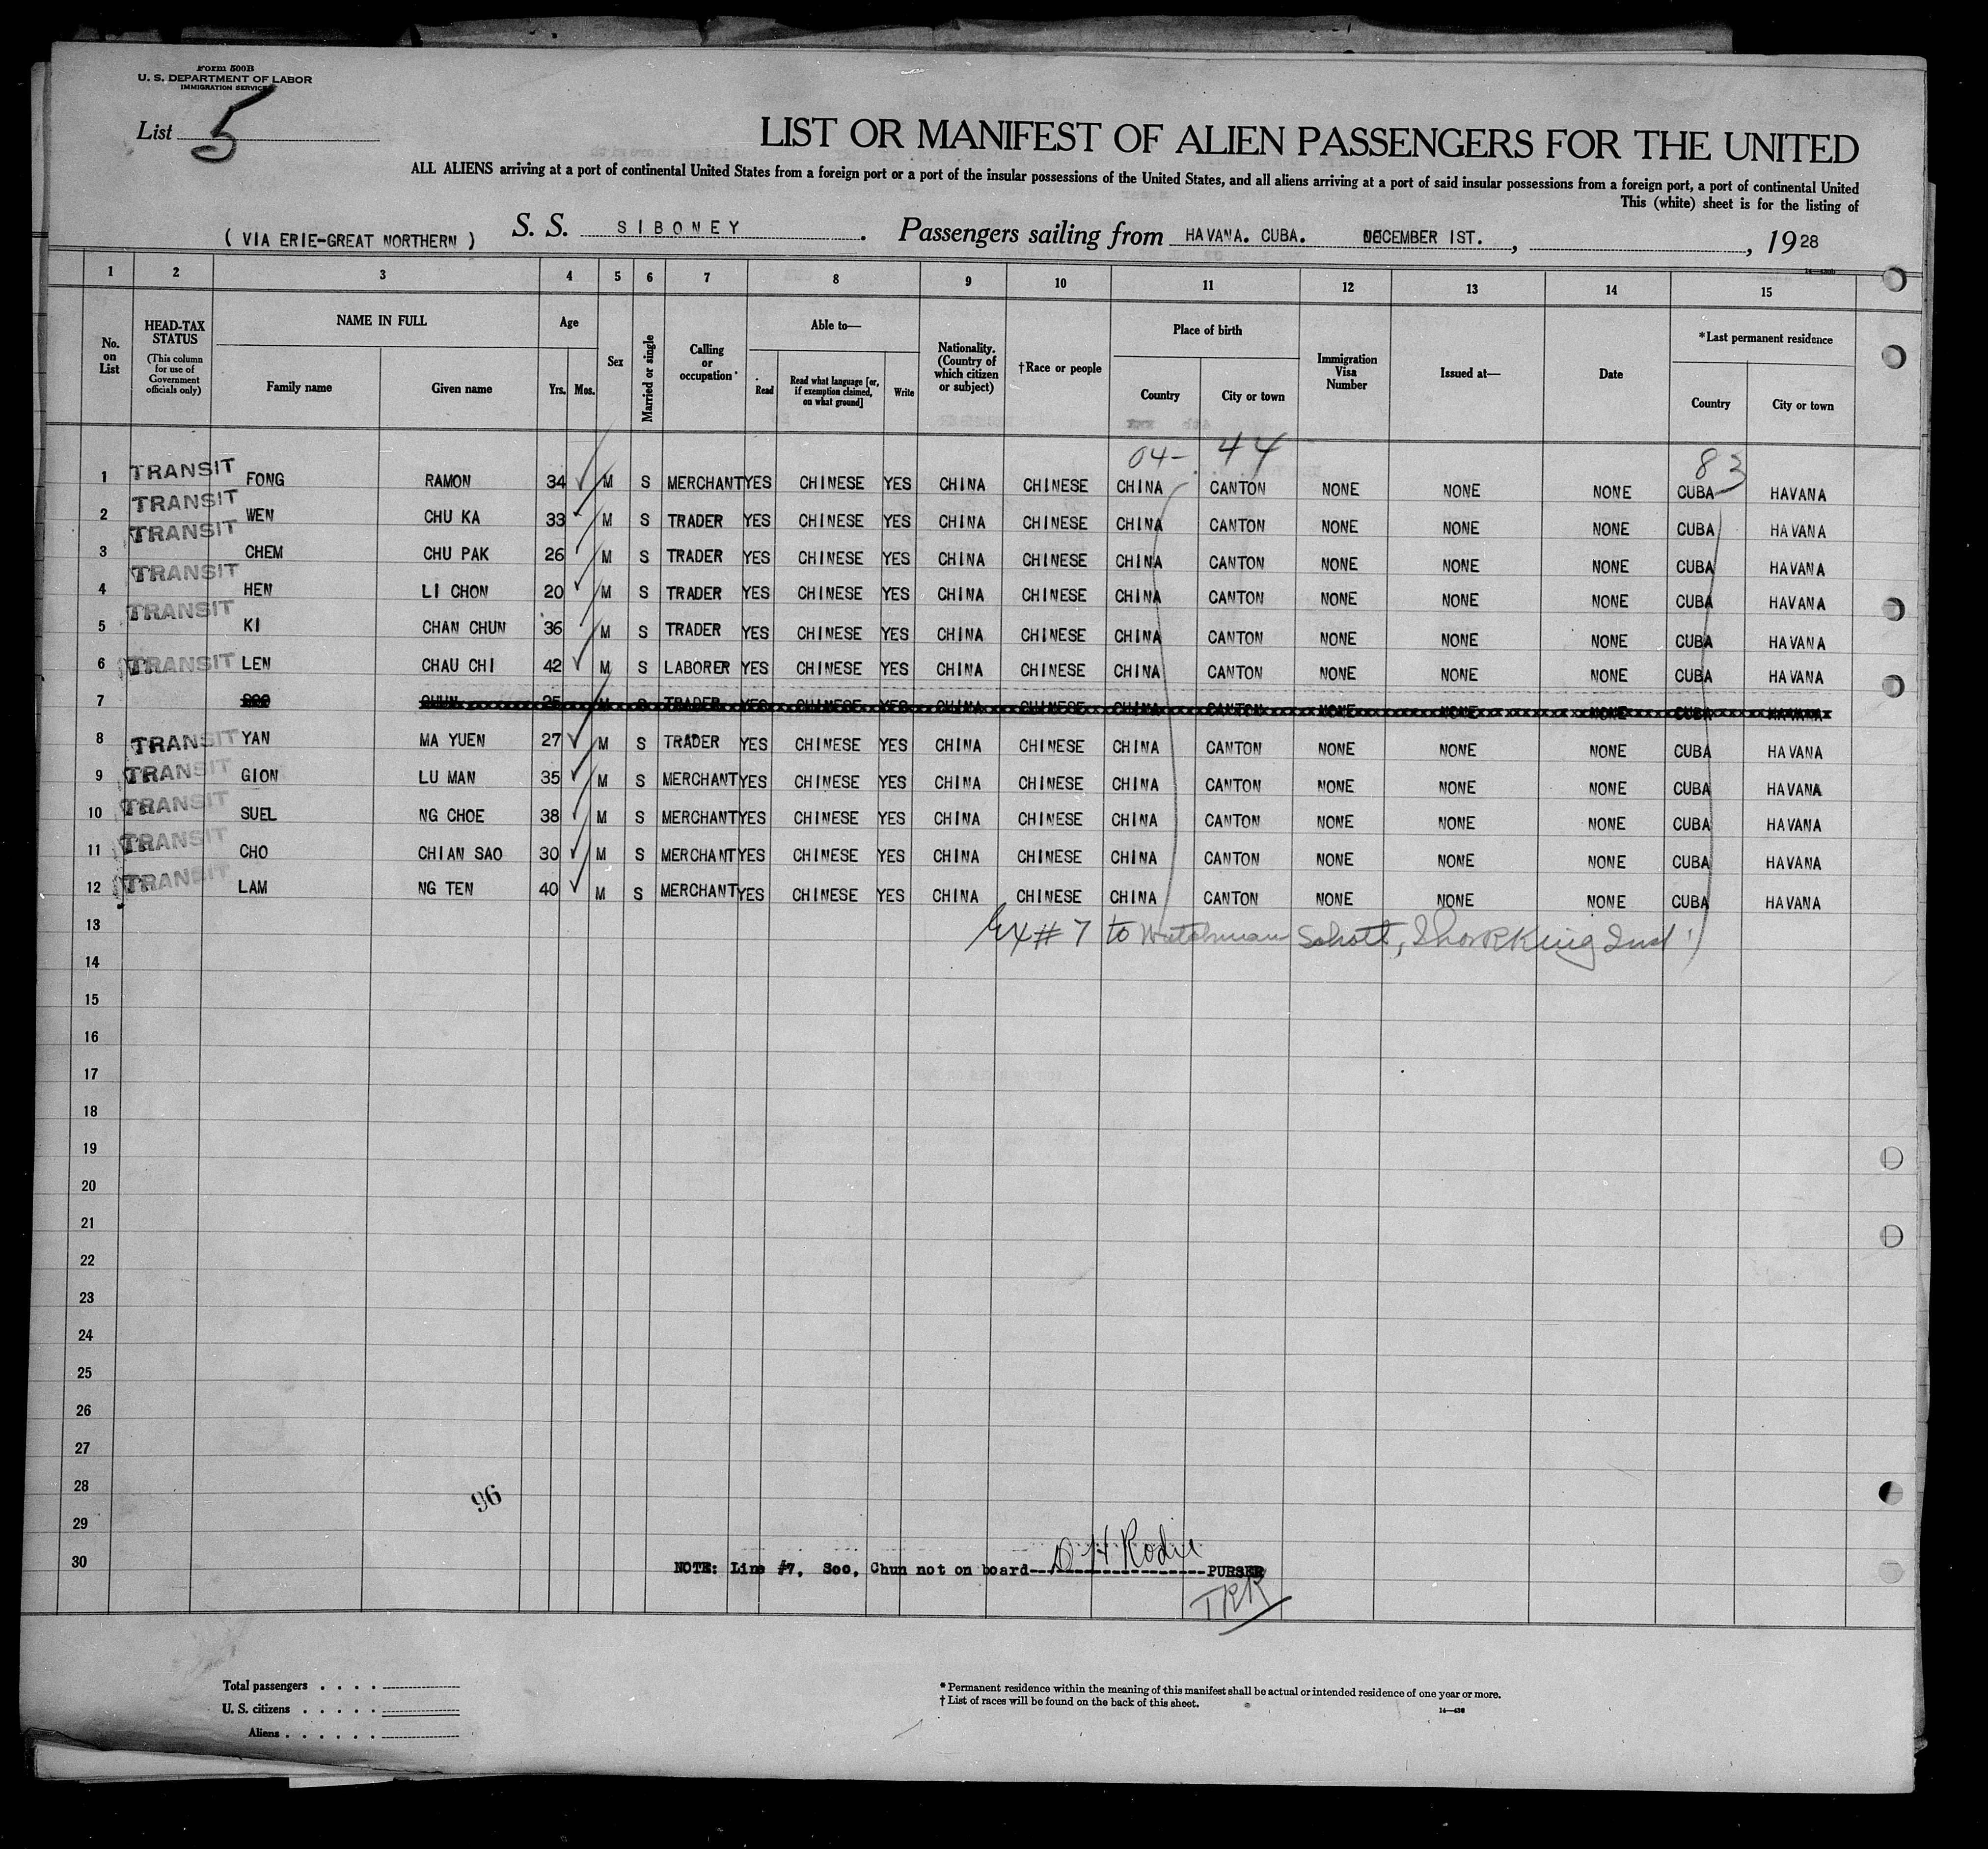 Form 500B
U. S. DEPARTMENT OF LABOR
IMMIGRATION SERVICE
List 5
LIST OR MANIFEST OF ALIEN PASSENGERS FOR THE UNITED
ALL ALIENS arriving at a port of continental United States from a foreign port or a port of the insular possessions of the United States, and all aliens arriving at a port of said insular possessions from a foreign port, a port of continental United
This (white) sheet is for the listing of
( VIA ERIE-GREAT NORTHERN ) S. S. SIBONEY . Passengers sailing from HAVANA. CUBA. DECEMBER 1ST. , , 1928
1 2 3 4 5 6 7 8 9 10 11 12 13 14 15
No. on List
HEAD-TAX STATUS (This column for use of Government officials only)
NAME IN FULL
Family name Given name
Age
Yrs. Mos.
Sex
Married or single
Calling or occupation
Able to—
Read Read what language [or, if exemption claimed, on what ground] Write
Nationality. (Country of which citizen or subject)
†Race or people
Place of birth
Country City or town
Immigration Visa Number
Issued at—
Date
*Last permanent residence
Country City or town
04- 44 83
1 TRANSIT FONG RAMON 34 M S MERCHANT YES CHINESE YES CHINA CHINESE CHINA CANTON NONE NONE NONE CUBA HAVANA
2 TRANSIT WEN CHU KA 33 M S TRADER YES CHINESE YES CHINA CHINESE CHINA CANTON NONE NONE NONE CUBA HAVANA
3 TRANSIT CHEM CHU PAK 26 M S TRADER YES CHINESE YES CHINA CHINESE CHINA CANTON NONE NONE NONE CUBA HAVANA
4 TRANSIT HEN LI CHON 20 M S TRADER YES CHINESE YES CHINA CHINESE CHINA CANTON NONE NONE NONE CUBA HAVANA
5 TRANSIT KI CHAN CHUN 36 M S TRADER YES CHINESE YES CHINA CHINESE CHINA CANTON NONE NONE NONE CUBA HAVANA
6 TRANSIT LEN CHAU CHI 42 M S LABORER YES CHINESE YES CHINA CHINESE CHINA CANTON NONE NONE NONE CUBA HAVANA
7 SOO CHUN 25 M S TRADER YES CHINESE YES CHINA CHINESE CHINA CANTON NONE NONE NONE CUBA HAVANA
8 TRANSIT YAN MA YUEN 27 M S TRADER YES CHINESE YES CHINA CHINESE CHINA CANTON NONE NONE NONE CUBA HAVANA
9 TRANSIT GION LU MAN 35 M S MERCHANT YES CHINESE YES CHINA CHINESE CHINA CANTON NONE NONE NONE CUBA HAVANA
10 TRANSIT SUEL NG CHOE 38 M S MERCHANT YES CHINESE YES CHINA CHINESE CHINA CANTON NONE NONE NONE CUBA HAVANA
11 TRANSIT CHO CHIAN SAO 30 M S MERCHANT YES CHINESE YES CHINA CHINESE CHINA CANTON NONE NONE NONE CUBA HAVANA
12 TRANSIT LAM NG TEN 40 M S MERCHANT YES CHINESE YES CHINA CHINESE CHINA CANTON NONE NONE NONE CUBA HAVANA
13 Ex # 7 to Watchman Schott,
14
15
16
17
18
19
20
21
22
23
24
25
26
27
28
96
29
30 NOTE: Line #7, Soo, Chun not on board D H Rodie PURSER
TRR
Total passengers . . . .
U. S. citizens . . . . .
Aliens . . . . . .
* Permanent residence within the meaning of this manifest shall be actual or intended residence of one year or more.
† List of races will be found on the back of this sheet.
14—430